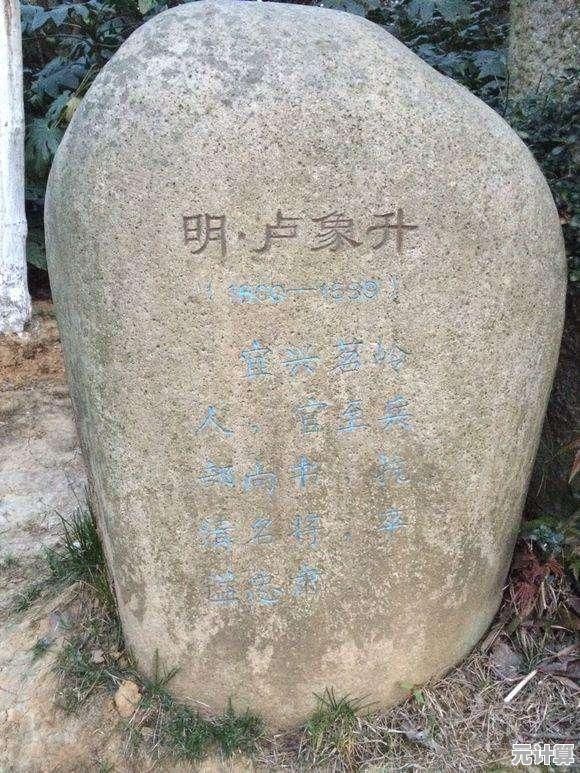 明·卢象升
(1600—1639)
宜兴茗岭
人，官至兵
部尚书，抗
清名将，卒
谥忠肃
元计算